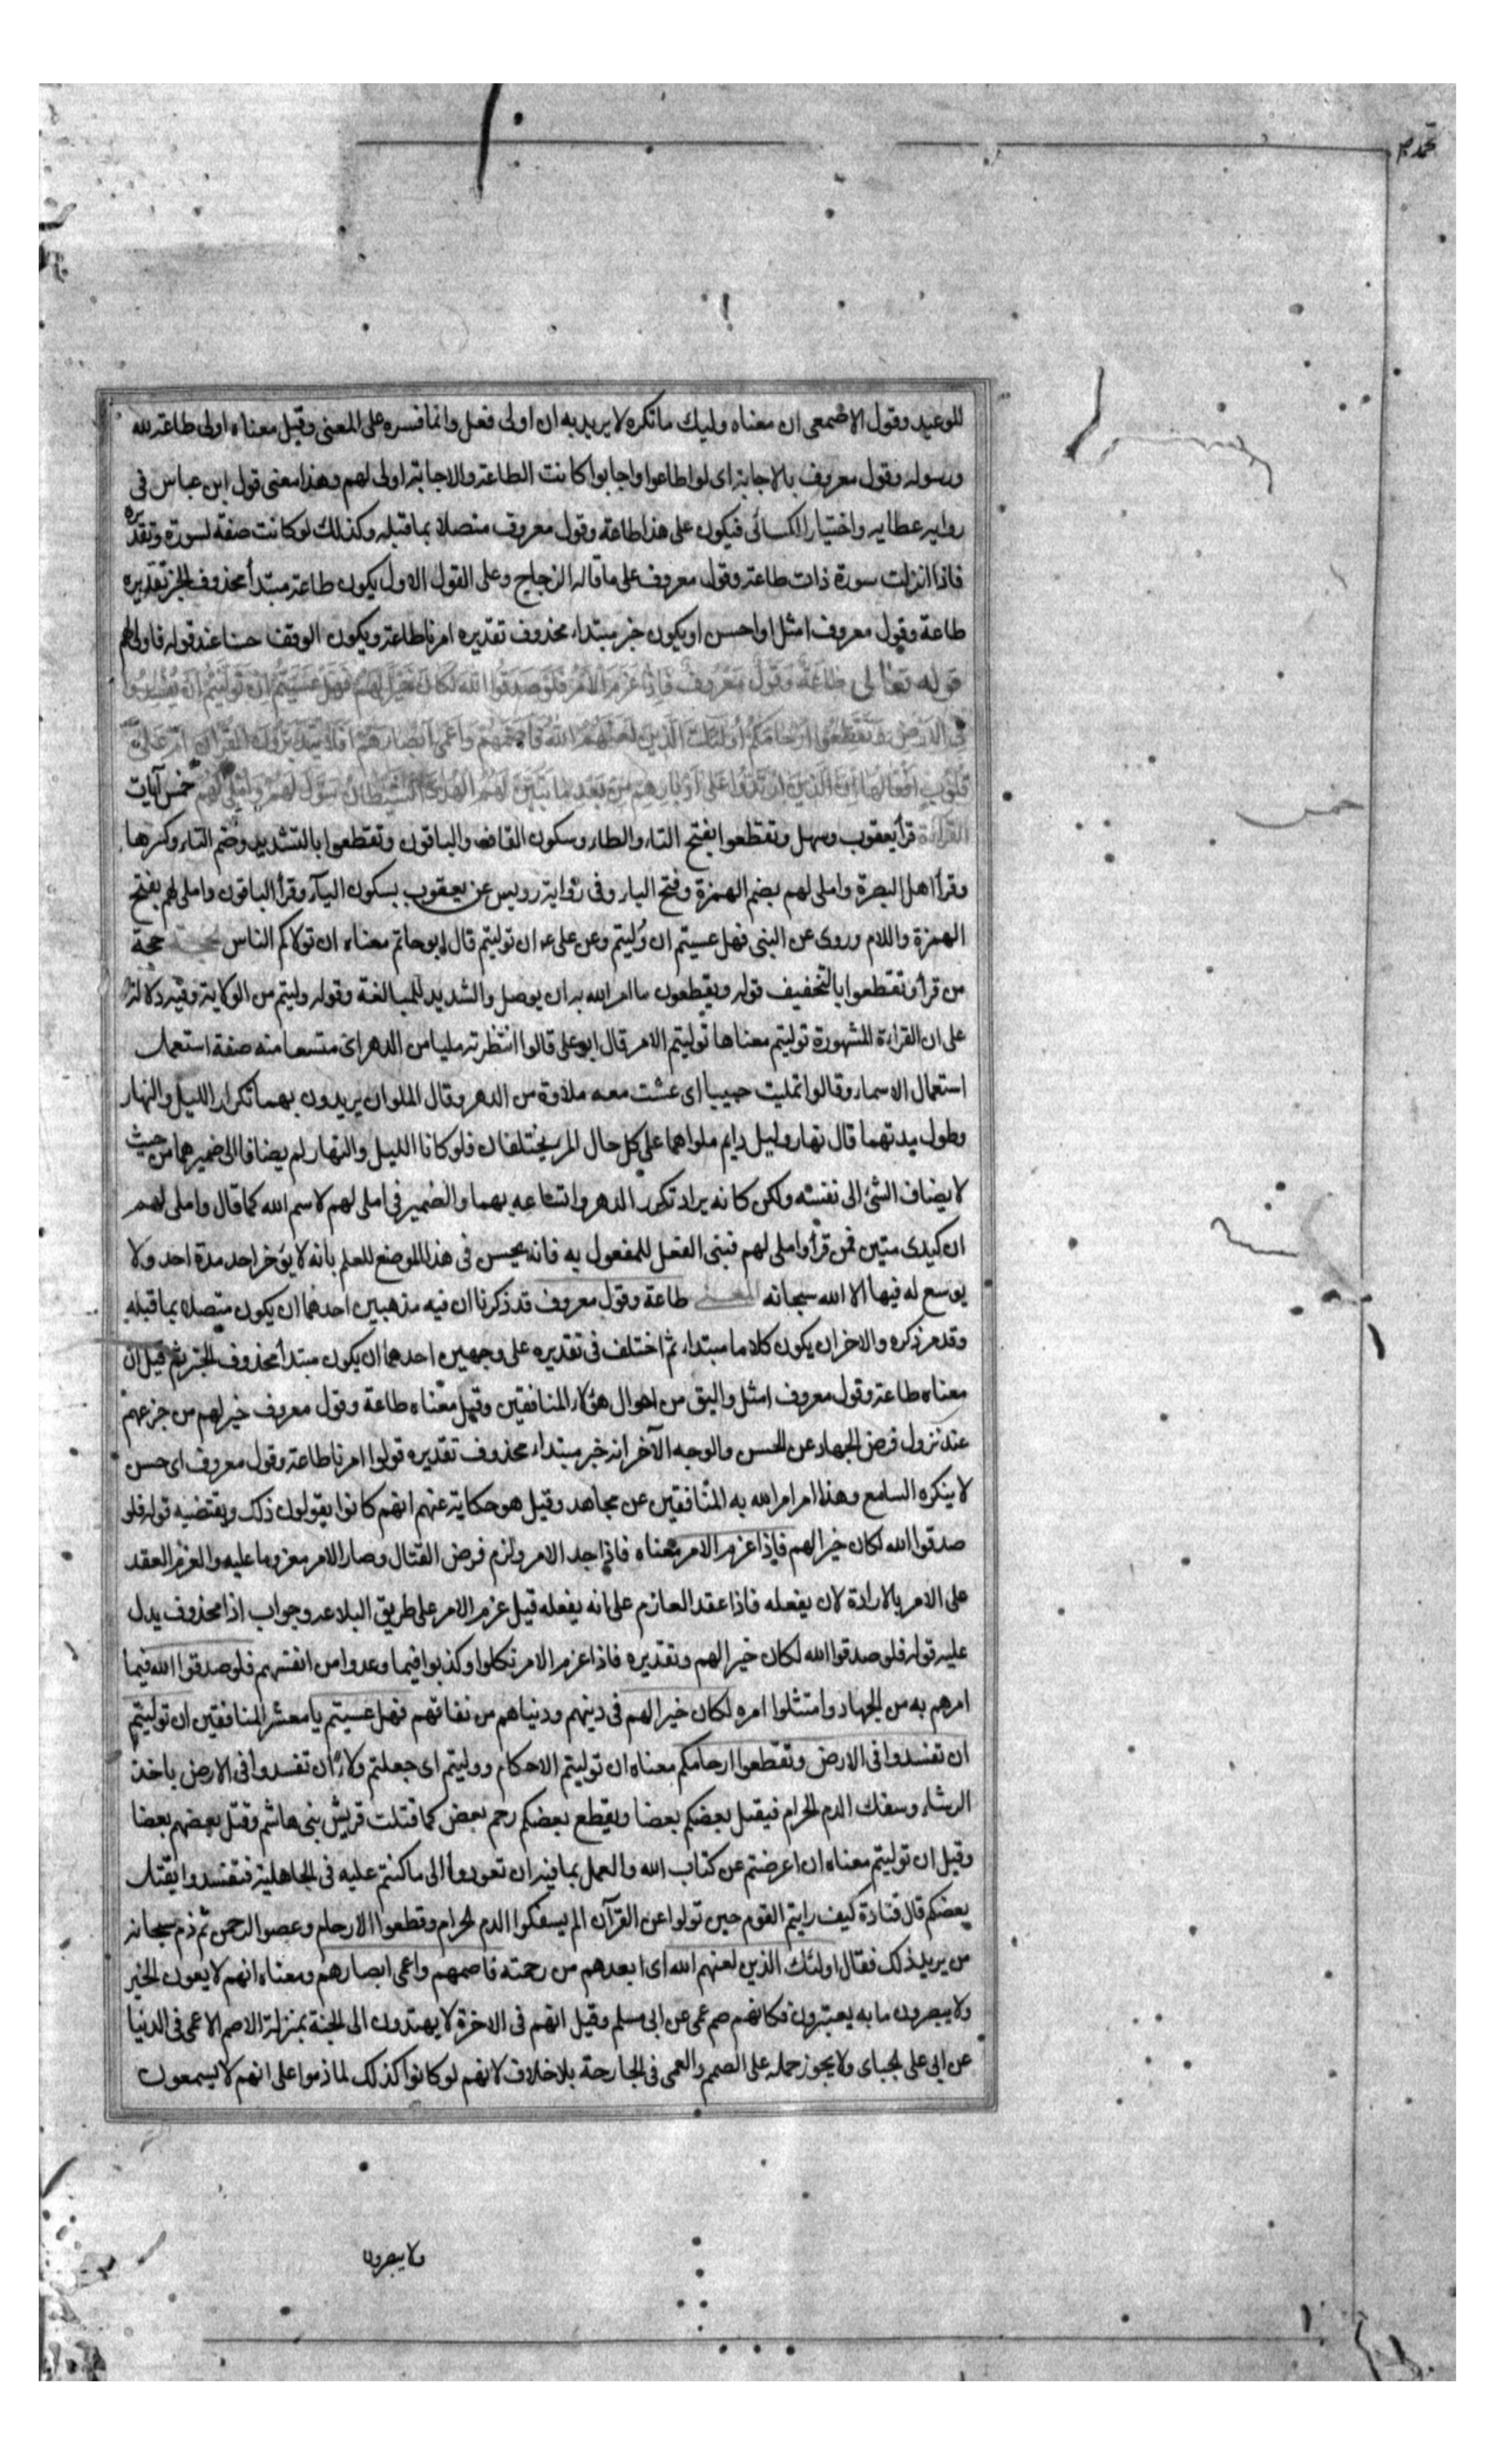 محمد ٣
للوعيد وقول الاضمعى ان معناه وليك ماتكره لا يريد به ان اولى فعل وانما فسره على المعنى وقيل معناه اولى طاعة لله
ورسوله وقول معروف بالاجابة اى لو اطاعوا واجابوا كانت الطاعة والاجابة اولى لهم وهذا معنى قول ابن عباس فى
رواية عطا به واختيار الكسائى فيكون على هذا طاعة وقول معروف متصلا بما قبله وكذلك لو كانت صفة لسورة وتقديره
فاذا انزلت سورة ذات طاعة وقول معروف على ما قاله الزجاج وعلى القول الاول يكون طاعة مبتدأ محذوف الخبر تقديره
طاعة وقول معروف امثل او احسن او يكون خبر مبتداء محذوف تقديره امرنا طاعة ويكون الوقف حسنا عند قوله فاولى لهم
قوله تعالى طَاعَةٌ وَقَوْلٌ مَعْرُوفٌ فَإِذَا عَزَمَ الْأَمْرُ فَلَوْ صَدَقُوا اللهَ لَكَانَ خَيْرًا لَهُمْ فَهَلْ عَسَيْتُمْ إِنْ تَوَلَّيْتُمْ أَنْ تُفْسِدُوا
فِي الْأَرْضِ وَتُقَطِّعُوا أَرْحَامَكُمْ أُولَئِكَ الَّذِينَ لَعَنَهُمُ اللهُ فَأَصَمَّهُمْ وَأَعْمَى أَبْصَارَهُمْ أَفَلَا يَتَدَبَّرُونَ الْقُرْآنَ أَمْ عَلَى
قُلُوبٍ أَقْفَالُهَا إِنَّ الَّذِينَ ارْتَدُّوا عَلَى أَدْبَارِهِمْ مِنْ بَعْدِ مَا تَبَيَّنَ لَهُمُ الْهُدَى الشَّيْطَانُ سَوَّلَ لَهُمْ وَأَمْلَى لَهُمْ خمس آيات
القراءة قرأ يعقوب وسهل وتقطعوا بفتح التاء والطاء وسكون القاف والباقون وتقطعوا بالتشديد وضم التاء وكسرها
وقرأ اهل البصرة واملى لهم بضم الهمزة وفتح الياء وفى رواية رويس عن يعقوب بسكون الياء وقرأ الباقون واملى لهم بفتح
الهمزة واللام وروى عن النبى فهل عسيتم ان وُليتم وعن على ع ان توليتم قال ابو حاتم معناه ان تولاكم الناس الحجة حجة
من قرأ وتقطعوا بالتخفيف قوله ويقطعون ما امر الله به ان يوصل والشديد للمبالغة وقوله وليتم من الولاية وفيه دلالة
على ان القراءة المشهورة توليتم معناها توليتم الامر قال ابو على قالوا انتظرته مليا من الدهر اى متسعا منه صفة استعمل
استعمال الاسماء وقالوا تمليت حبيبا اى عشت معه ملاوة من الدهر وقال الملوان يريدون بهما تكرار الليل والنهار
وطول مدتهما قال نهار وليل دايم ملواهما على كل حال المرء يختلفان فلو كانا الليل والنهار لم يضافا الى ضميرهما من حيث
لا يضاف الشئ الى نفسه ولكن كانه يراد تكرر الدهر واتساعه بهما والضمير فى املى لهم لاسم الله كما قال واملى لهم
ان كيدى متين فمن قرأ واملى لهم فبنى الفعل للمفعول به فانه يحسن فى هذا الموضع للعلم بانه لا يؤخر احد مدة احد ولا
يوسع له فيها الا الله سبحانه المعنى طاعة وقول معروف قد ذكرنا ان فيه مذهبين احدهما ان يكون متصلا بما قبله
وقد مر ذكره والاخر ان يكون كلاما مبتداء ثم اختلف فى تقديره على وجهين احدهما ان يكون مبتدأ محذوف الخبر ثم قيل ان
معناه طاعة وقول معروف امثل واليق من احوال هؤلاء المنافقين وقيل معناه طاعة وقول معروف خير لهم من جزعهم
عند نزول فرض الجهاد عن الحسن والوجه الآخر انه خبر مبتداء محذوف تقديره قولوا امرنا طاعة وقول معروف اى حسن
لا ينكره السامع وهذا امر امر الله به المنافقين عن مجاهد وقيل هو حكاية عنهم انهم كانوا يقولون ذلك ويقتضيه قوله فلو
صدقوا الله لكان خيرا لهم فاذا عزم الامر معناه فاذا جد الامر ولزم فرض القتال وصار الامر معزوما عليه والعزم العقد
على الامر بالارادة لان يفعله فاذا عقد العازم على انه يفعله قيل عزم الامر على طريق البلاغه وجواب اذا محذوف يدل
عليه قوله فلو صدقوا الله لكان خيرا لهم وتقديره فاذا عزم الامر نكلوا وكذبوا فيما وعدوا من انفسهم فلو صدقوا الله فيما
امرهم به من الجهاد وامتثلوا امره لكان خيرا لهم فى دينهم ودنياهم من نفاقهم فهل عسيتم يا معشر المنافقين ان توليتم
ان تفسدوا فى الارض وتقطعوا ارحامكم معناه ان توليتم الاحكام ووليتم اى جعلتم ولاة ان تفسدوا فى الارض باخذ
الرشاء وسفك الدم الحرام فيقتل بعضكم بعضا ويقطع بعضكم رحم بعض كما قتلت قريش بنى هاشم وقتل بعضهم بعضا
وقيل ان توليتم معناه ان اعرضتم عن كتاب الله والعمل بما فيه ان تعودوا الى ما كنتم عليه فى الجاهلية فتفسدوا يقتل
بعضكم قال قتادة كيف رايتم القوم حين تولوا عن القرآن الم يسفكوا الدم الحرام وقطعوا الارحام وعصوا الرحمن ثم ذم سبحانه
من يريد ذلك فقال اولئك الذين لعنهم الله اى ابعدهم من رحمته فاصمهم واعمى ابصارهم ومعناه انهم لا يعون الخير
ولا يبصرون ما به يعتبرون فكانهم صم عمى عن ابى مسلم وقيل انهم فى الاخرة لا يهتدون الى الجنة بمنزلة الاصم الاعمى فى الدنيا
عن ابى على الجباى ولا يجوز حمله على الصمم والعمى فى الجارحة بلا خلاف لانهم لو كانوا كذلك لما ذموا على انهم لا يسمعون
ولا يبصرون